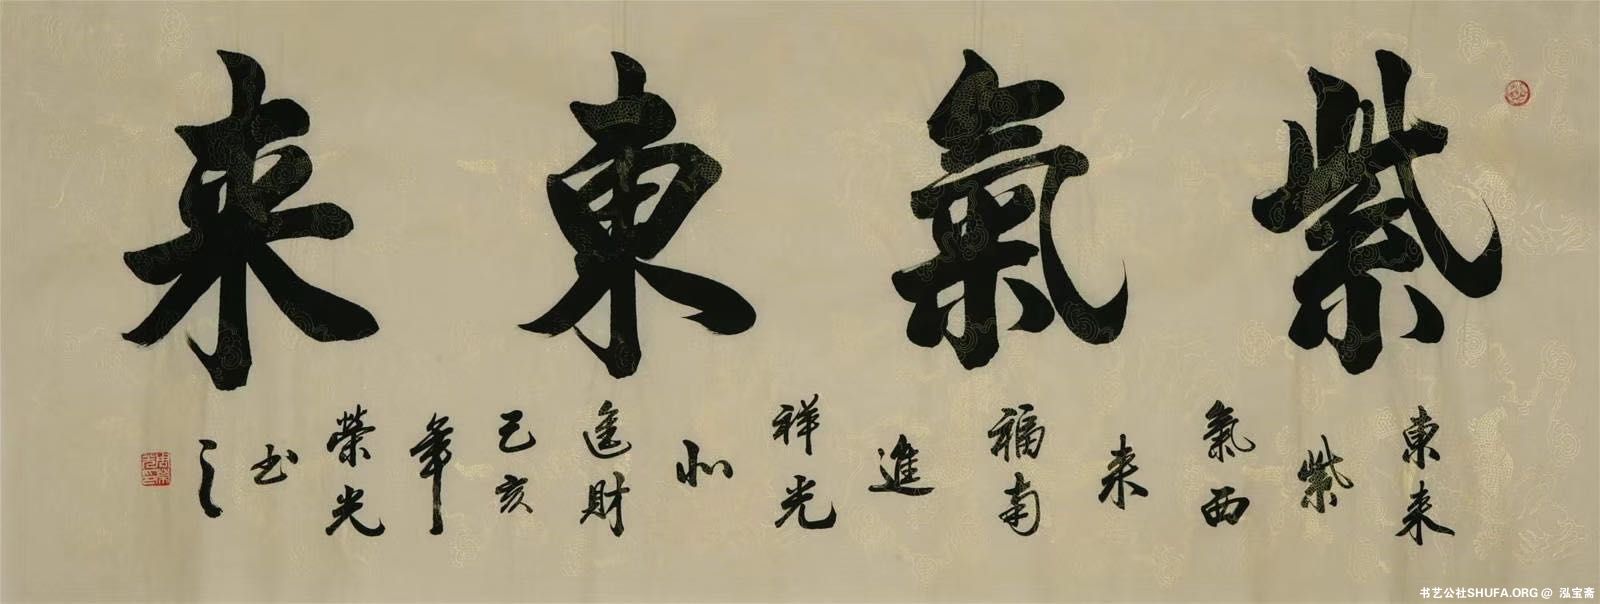 紫氣東来
東来
紫
氣西
来
福南
進
祥光
北
進財
己亥
年
榮光
书
之
书艺公社SHUFA.ORG @ 泓宝斋